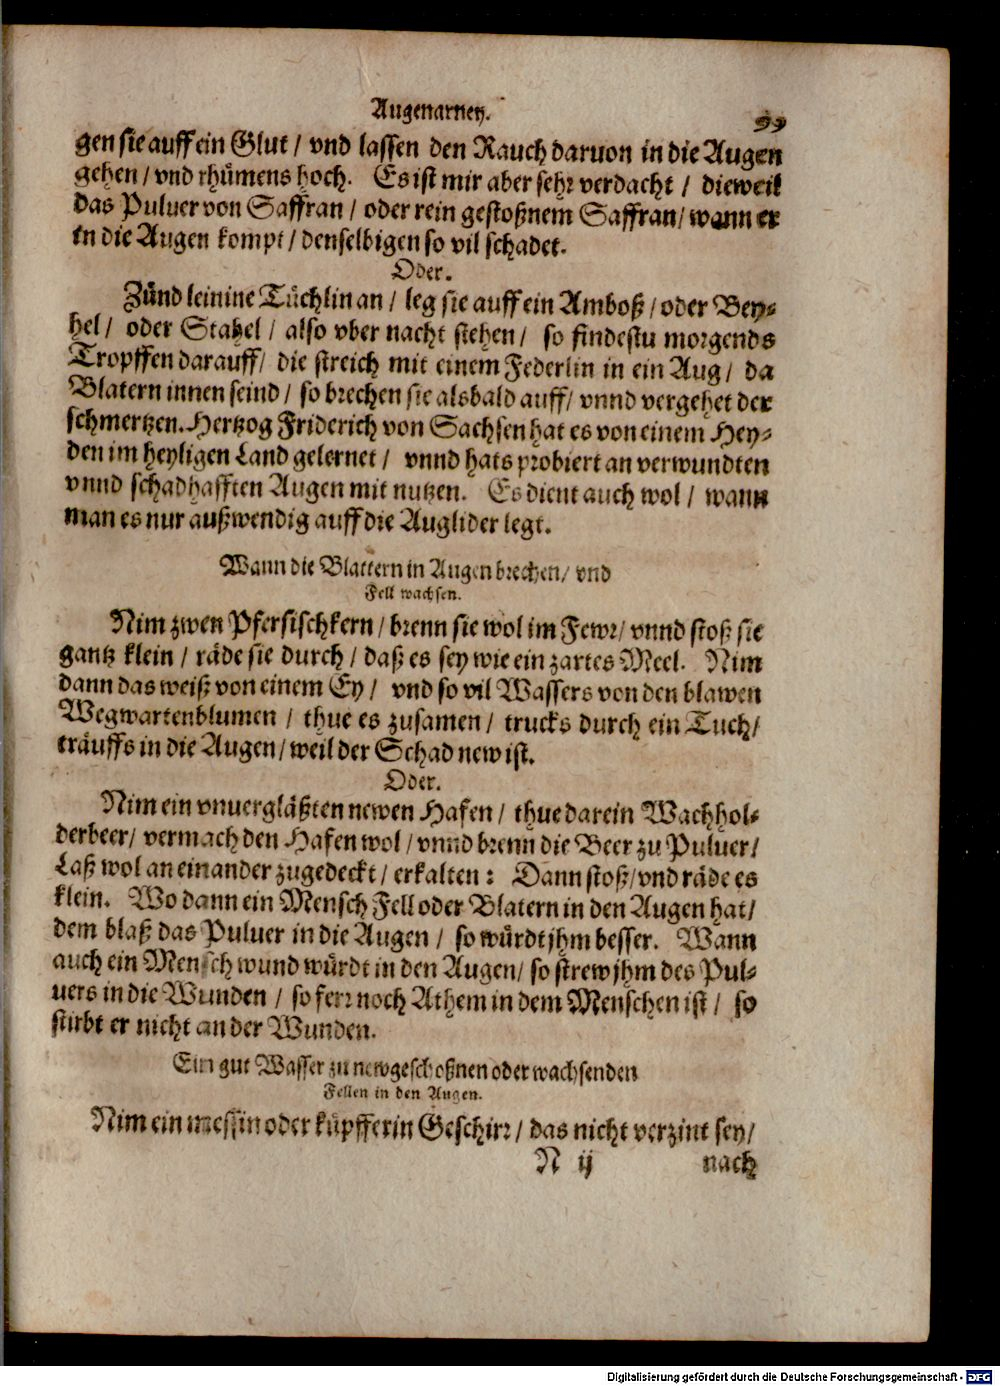 Augenarney.
99
gen sie auff ein Glut / vnd lassen den Rauch daruon in die Augen
gehen / vnd rhümens hoch. Es ist mir aber sehr verdacht / dieweil
das Puluer von Saffran / oder rein gestoßnem Saffran / wann er
in die Augen kompt / denselbigen so vil schadet.
Oder.
Zünd leinine Tüchlin an / leg sie auff ein Amboß / oder Bey-
hel / oder Stahel / also vber nacht stehen / so findestu morgends
Tropffen darauff / die streich mit einem Federlin in ein Aug / da
Blatern innen seind / so brechen sie alsbald auff / vnnd vergehet der
schmertzen. Hertzog Friderich von Sachsen hat es von einem Hey-
den im heyligen Land gelernet / vnnd hats probiert an verwundten
vnnd schadhafften Augen mit nutzen. Es dient auch wol / wann
man es nur außwendig auff die Auglider legt.
Wann die Blattern in Augen brechen / vnd
Fell wachsen.
Nim zwen Pfersischkern / brenn sie wol im Fewr / vnnd stoß sie
gantz klein / räde sie durch / daß es sey wie ein zartes Meel. Nim
dann das weiß von einem Ey / vnd so vil Wassers von den blawen
Wegwartenblumen / thue es zusamen / trucks durch ein Tuch /
träuffs in die Augen / weil der Schad new ist.
Oder.
Nim ein vnuergläßten newen Hafen / thue darein Wachhol-
derbeer / vermach den Hafen wol / vnnd brenn die Beer zu Puluer /
Laß wol an einander zugedeckt / erkalten : Dann stoß / vnd räde es
klein. Wo dann ein Mensch Fell oder Blatern in den Augen hat /
dem blaß das Puluer in die Augen / so würdt jhm besser. Wann
auch ein Mensch wund würdt in den Augen / so strew jhm des Pul-
uers in die Wunden / so ferr noch Athem in dem Menschen ist / so
stirbt er nicht an der Wunden.
Ein gut Wasser zu newgeschoßnen oder wachsenden
Fellen in den Augen.
Nim ein messin oder küpfferin Geschirr / das nicht verzint sey /
N ij
nach
Digitalisierung gefördert durch die Deutsche Forschungsgemeinschaft - DFG